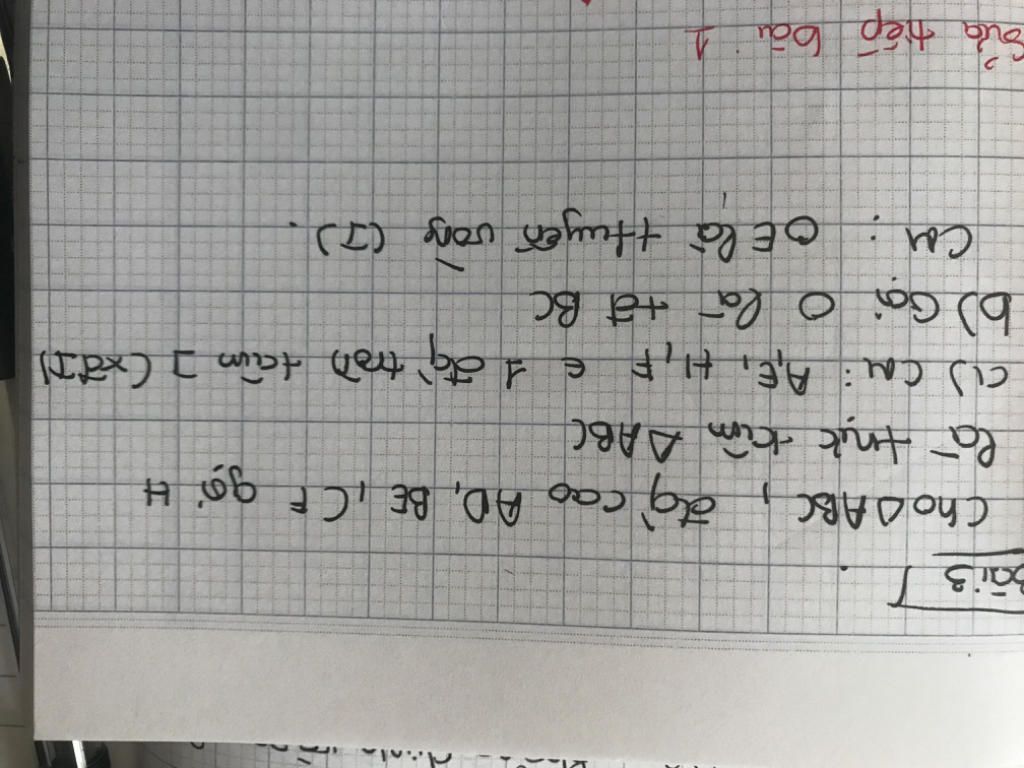 Bài 3
Cho ΔABC, đg cao AD, BE, CF gọi H
là trực tâm ΔABC
a) CM: A, E, H, F ∈ 1 đg tròn tâm I (xđ I)
b) Gọi O là tđ BC
CM: OE là ttuyến vòng (I).
Sửa tiếp bài 1